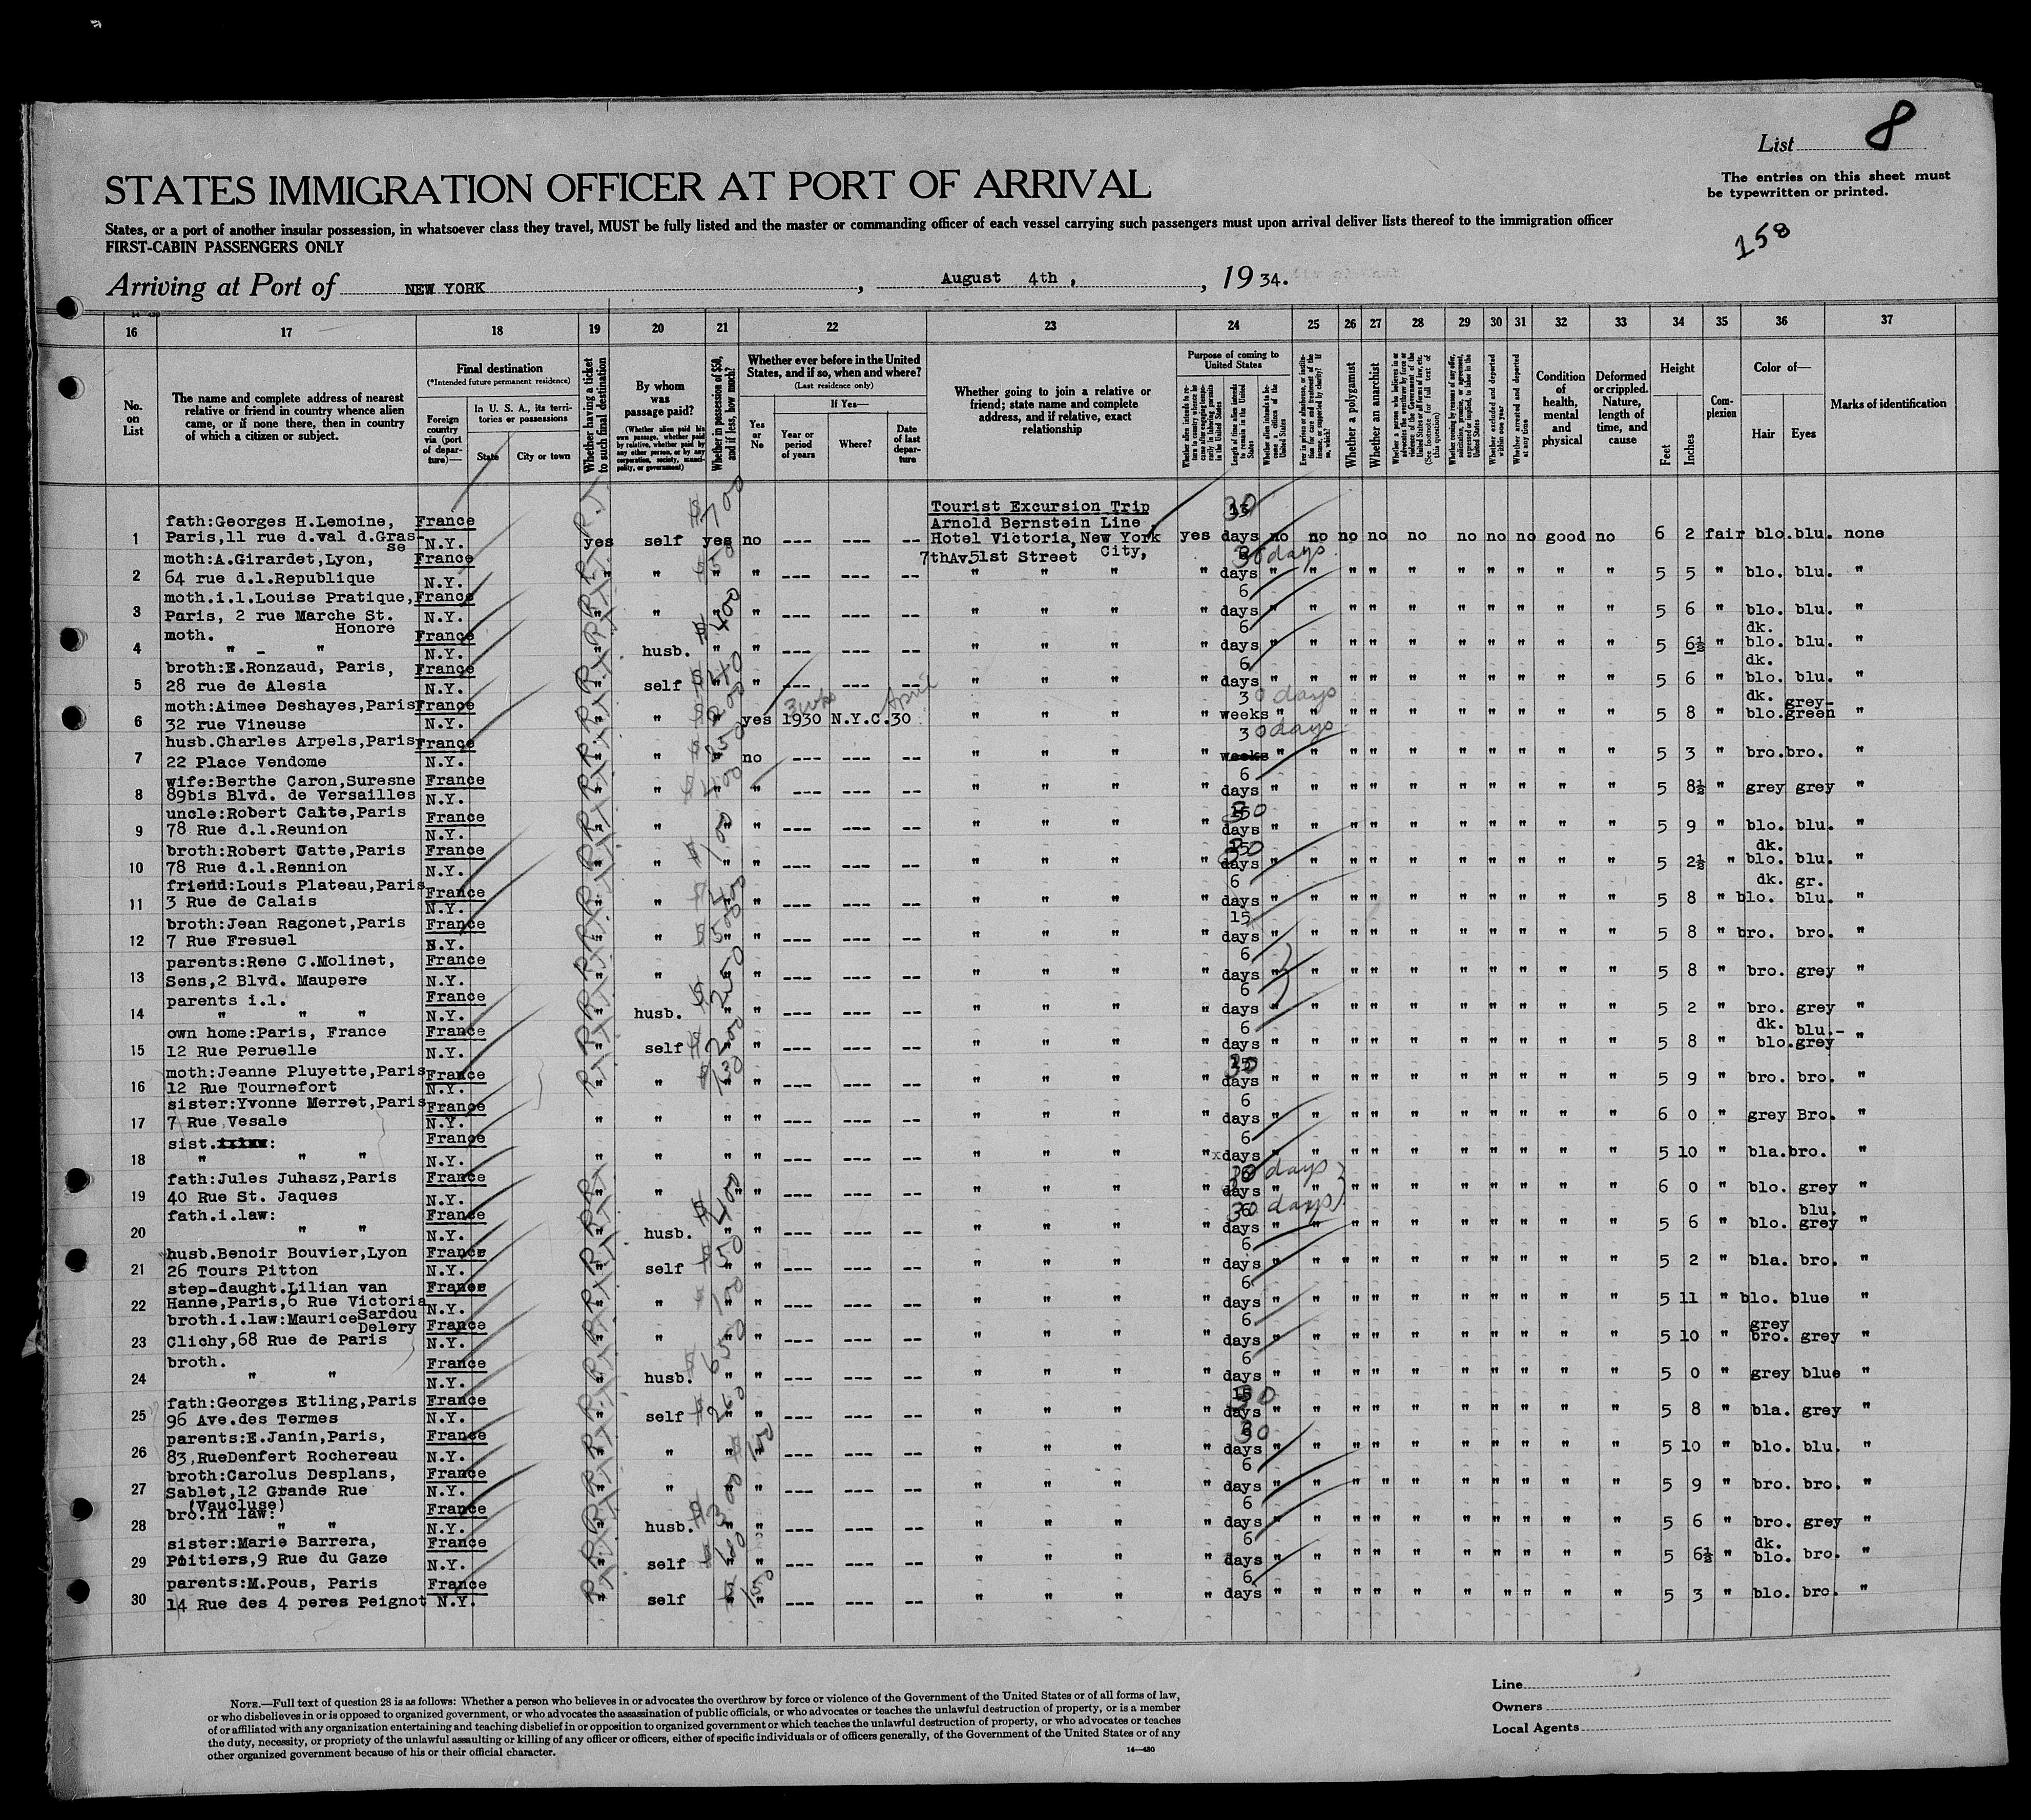 List 8
STATES IMMIGRATION OFFICER AT PORT OF ARRIVAL
The entries on this sheet must
be typewritten or printed.
States, or a port of another insular possession, in whatsoever class they travel, MUST be fully listed and the master or commanding officer of each vessel carrying such passengers must upon arrival deliver lists thereof to the immigration officer
FIRST-CABIN PASSENGERS ONLY
158
Arriving at Port of NEW YORK, August 4th, , 1934.
16 17 18 19 20 21 22 23 24 25 26 27 28 29 30 31 32 33 34 35 36 37
No. on List
The name and complete address of nearest relative or friend in country whence alien came, or if none there, then in country of which a citizen or subject.
Final destination
(*Intended future permanent residence)
Foreign country via (port of departure)—
In U. S. A., its territories or possessions
State City or town
Whether having a ticket to such final destination
By whom was passage paid?
(Whether alien paid his own passage, whether paid by relative, whether paid by any other person, or by any corporation, society, municipality, or government)
Whether in possession of $50, and if less, how much?
Whether ever before in the United States, and if so, when and where?
(Last residence only)
Yes or No
If Yes—
Year or period of years Where? Date of last departure
Whether going to join a relative or friend; state name and complete address, and if relative, exact relationship
Purpose of coming to United States
Length of time alien intends to remain in the United States
Whether a polygamist
Whether an anarchist
Whether excluded and deported within one year
Whether arrested and deported at any time
Condition of health, mental and physical
Deformed or crippled. Nature, length of time, and cause
Height
Feet Inches
Complexion
Color of—
Hair Eyes
Marks of identification
Tourist Excursion Trip
Arnold Bernstein Line,
Hotel Victoria, New York City,
7thAv.51st Street
1 fath:Georges H.Lemoine, Paris,11 rue d.val d.Grasse France N.Y. yes self yes $700 no --- --- -- yes 30 days no no no no no no no no good no 6 2 fair blo. blu. none
2 moth:A.Girardet,Lyon, 64 rue d.l.Republique France N.Y. " " " $50 " --- --- -- " " " " 30 days " " " " " " " " " " 5 5 " blo. blu. "
3 moth.i.l.Louise Pratique, Paris, 2 rue Marche St. Honore France N.Y. " " " " --- --- -- " " " " 6 days " " " " " " " " " " 5 6 " blo. blu. "
4 moth. " - " France N.Y. " husb. $400 " " --- --- -- " " " " 6 days " " " " " " " " " " 5 6½ " dk. blo. blu. "
5 broth:E.Ronzaud, Paris, 28 rue de Alesia France N.Y. " self " " --- --- -- " " " " 6 days " " " " " " " " " " 5 6 " dk. blo. blu. "
6 moth:Aimee Deshayes,Paris 32 rue Vineuse France N.Y. " " $200 " yes 1930 3 wks N.Y.C. April 30 " " " " 30 days weeks " " " " " " " " " " 5 8 " dk. blo. grey-green "
7 husb.Charles Arpels,Paris 22 Place Vendome France N.Y. " " $250 " no --- --- -- " " " " 30 days weeks " " " " " " " " " " 5 3 " bro. bro. "
8 wife:Berthe Caron,Suresne 89bis Blvd. de Versailles France N.Y. " " $400 " " --- --- -- " " " " 6 days " " " " " " " " " " 5 8½ " grey grey "
9 uncle:Robert Catte,Paris 78 Rue d.l.Reunion France N.Y. " " " " --- --- -- " " " " 30 days " " " " " " " " " " 5 9 " blo. blu. "
10 broth:Robert Catte,Paris 78 Rue d.l.Rennion France N.Y. " " $100 " " --- --- -- " " " " 30 days " " " " " " " " " " 5 2½ " dk. blo. blu. "
11 friend:Louis Plateau,Paris 3 Rue de Calais France N.Y. " " " " --- --- -- " " " " 6 days " " " " " " " " " " 5 8 " dk. blo. gr. blu. "
12 broth:Jean Ragonet,Paris 7 Rue Fresuel France N.Y. " " $500 " " --- --- -- " " " " 15 days " " " " " " " " " " 5 8 " bro. bro. "
13 parents:Rene C.Molinet, Sens,2 Blvd. Maupere France N.Y. " " " " --- --- -- " " " " 6 days " " " " " " " " " " 5 8 " bro. grey "
14 parents i.l. " " " France N.Y. " husb. $250 " " --- --- -- " " " " 6 days " " " " " " " " " " 5 2 " bro. grey "
15 own home:Paris, France 12 Rue Peruelle France N.Y. " self $200 " " --- --- -- " " " " 6 days " " " " " " " " " " 5 8 " dk. blo. blu.-grey "
16 moth:Jeanne Pluyette,Paris 12 Rue Tournefort France N.Y. " " $130 " " --- --- -- " " " " 30 days " " " " " " " " " " 5 9 " bro. bro. "
17 sister:Yvonne Merret,Paris 7 Rue Vesale France N.Y. " " " " --- --- -- " " " " 6 days " " " " " " " " " " 6 0 " grey Bro. "
18 sist. : " " " France N.Y. " " " " --- --- -- " " " " 6 days " " " " " " " " " " 5 10 " bla. bro. "
19 fath:Jules Juhasz,Paris 40 Rue St. Jaques France N.Y. " " " " --- --- -- " " " " 30 days " " " " " " " " " " 6 0 " blo. grey "
20 fath.i.law: " " France N.Y. " husb. $400 " " --- --- -- " " " " 30 days " " " " " " " " " " 5 6 " blo. blu. grey "
21 husb.Benoir Bouvier,Lyon 26 Tours Pitton France N.Y. " self $50 " " --- --- -- " " " " 6 days " " " " " " " " " " 5 2 " bla. bro. "
22 step-daught.Lilian van Hanne,Paris,6 Rue Victoria Sardou France N.Y. " " $100 " " --- --- -- " " " " 6 days " " " " " " " " " " 5 11 " blo. blue "
23 broth.i.law:Maurice Delery Clichy,68 Rue de Paris France N.Y. " " " " --- --- -- " " " " 6 days " " " " " " " " " " 5 10 " grey bro. grey "
24 broth. " " France N.Y. " husb. $650 " " --- --- -- " " " " 6 days " " " " " " " " " " 5 0 " grey blue "
25 fath:Georges Etling,Paris 96 Ave.des Termes France N.Y. " self $260 " " --- --- -- " " " " 30 days " " " " " " " " " " 5 8 " bla. grey "
26 parents:E.Janin,Paris, 83,RueDenfert Rochereau France N.Y. " " $100 " " --- --- -- " " " " 30 days " " " " " " " " " " 5 10 " blo. blu. "
27 broth:Carolus Desplans, Sablet,12 Grande Rue (Vaucluse) France N.Y. " " " " --- --- -- " " " " 6 days " " " " " " " " " " 5 9 " bro. bro. "
28 bro.in law: " " France N.Y. " husb. $300 " " --- --- -- " " " " 6 days " " " " " " " " " " 5 6 " bro. grey "
29 sister:Marie Barrera, Poitiers,9 Rue du Gaze France N.Y. " self " " --- --- -- " " " " 6 days " " " " " " " " " " 5 6½ " dk. blo. bro. "
30 parents:M.Pous, Paris 14 Rue des 4 peres Peignot France N.Y. " self $150 " " --- --- -- " " " " 6 days " " " " " " " " " " 5 3 " blo. bro. "
NOTE.—Full text of question 28 is as follows: Whether a person who believes in or advocates the overthrow by force or violence of the Government of the United States or of all forms of law,
or who disbelieves in or is opposed to organized government, or who advocates the assassination of public officials, or who advocates or teaches the unlawful destruction of property, or is a member
of or affiliated with any organization entertaining and teaching disbelief in or opposition to organized government or which teaches the unlawful destruction of property, or who advocates or teaches
the duty, necessity, or propriety of the unlawful assaulting or killing of any officer or officers, either of specific individuals or of officers generally, of the Government of the United States or of any
other organized government because of his or their official character.
14—430
Line
Owners
Local Agents